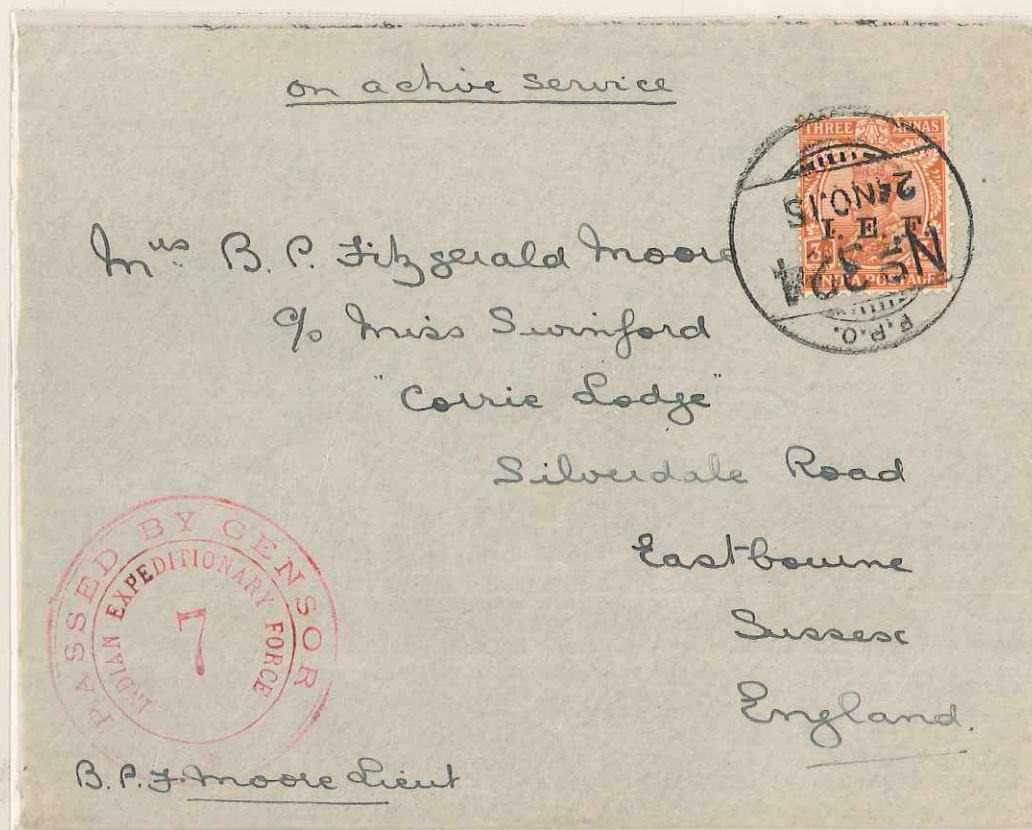 on active service
THREE ANNAS
I. E. F.
INDIA POSTAGE
F.P.O.
No 324
NO.15
Mrs. B. P. Fitzgerald Moore
c/o Miss Swinford
"Corrie Lodge"
Silverdale Road
Eastbourne
Sussex
England.
PASSED BY CENSOR
INDIAN EXPEDITIONARY FORCE
7
B. P. F. Moore Lieut